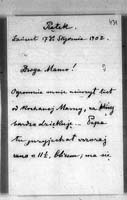 Piątek.
Łańcut 17go Stycznia 1902.
Droga Mamo!
Ogromnie mnie ucieszył list
od Kochanej Mamy, za który
bardzo dziękuję. Papa
tu przyjechał wczoraj
rano o 11½, ma się